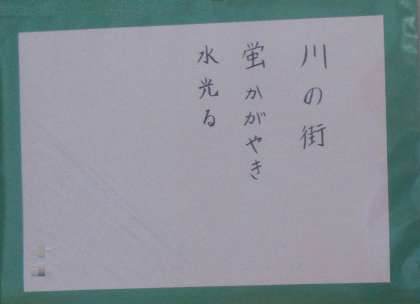 川の街
蛍かがやき
水光る